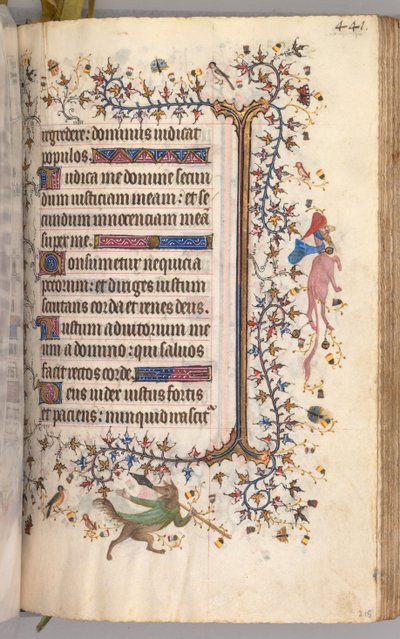 441.
regredere: dominus iudicat
populos.
Iudica me domine secun
dum iusticiam meam: et se
cundum innocenciam meā
super me.
Consumetur nequicia
peccorum: et diriges iustum
scrutans corda et renes deus.
Iustum adiutorium me
um a domino: qui saluos
facit rectos corde.
Deus iudex iustus fortis
et paciens: nunquid irascit᷑
215